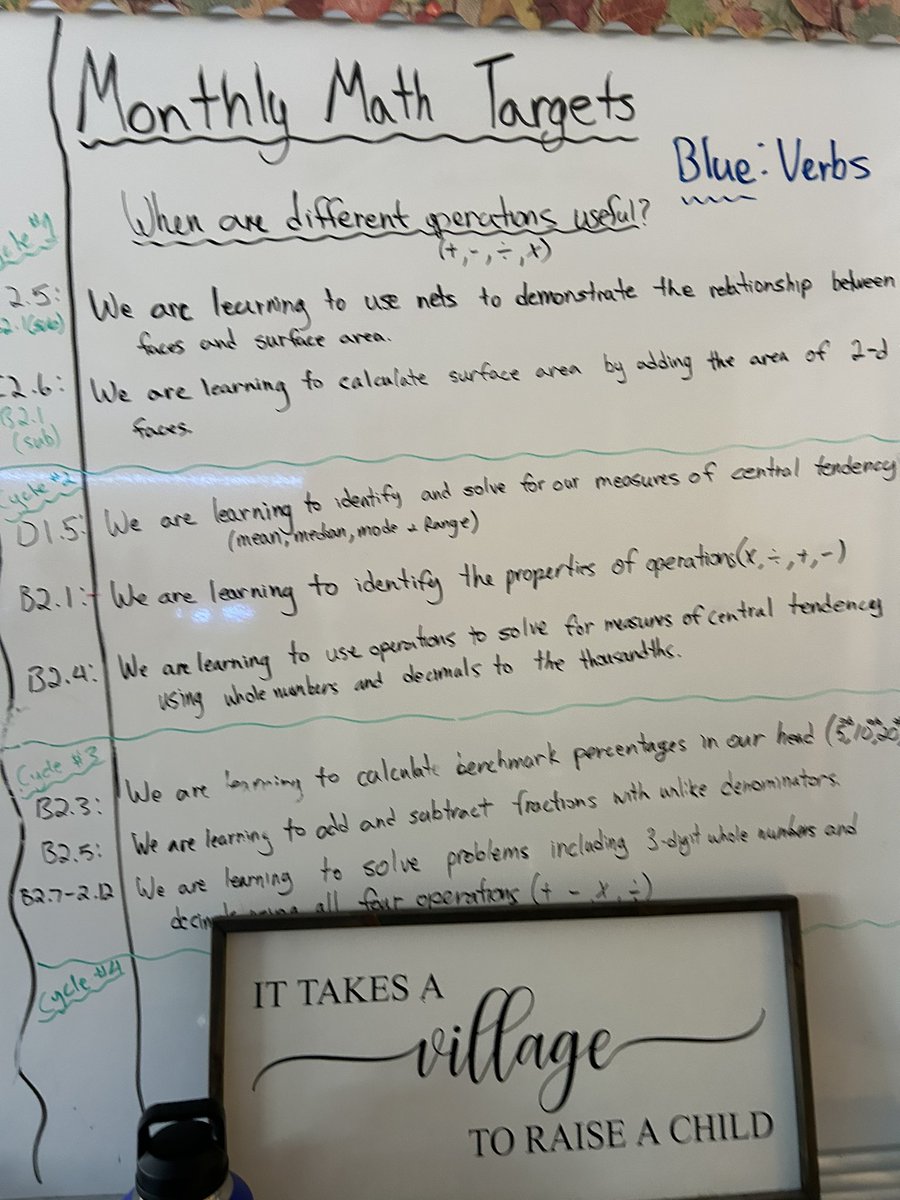 Monthly Math Targets
Blue: Verbs
When are different operations useful?
(+, -, ÷, x)
#1
2.5: We are learning to use nets to demonstrate the relationship between
(sub) faces and surface area.
2.6: We are learning to calculate surface area by adding the area of 2-d
B2.1 faces.
(sub)
Cycle #2
D1.5: We are learning to identify and solve for our measures of central tendency
(mean, median, mode + Range)
B2.1: We are learning to identify the properties of operations (x, ÷, +, -)
B2.4: We are learning to use operations to solve for measures of central tendency
using whole numbers and decimals to the thousandths.
Cycle #3
B2.3: We are learning to calculate benchmark percentages in our head (5%, 10%, 20%,
B2.5: We are learning to add and subtract fractions with unlike denominators.
B2.7-2.12 We are learning to solve problems including 3-digit whole numbers and
all four operations (+ - x ÷)
Cycle #4
IT TAKES A
village
TO RAISE A CHILD